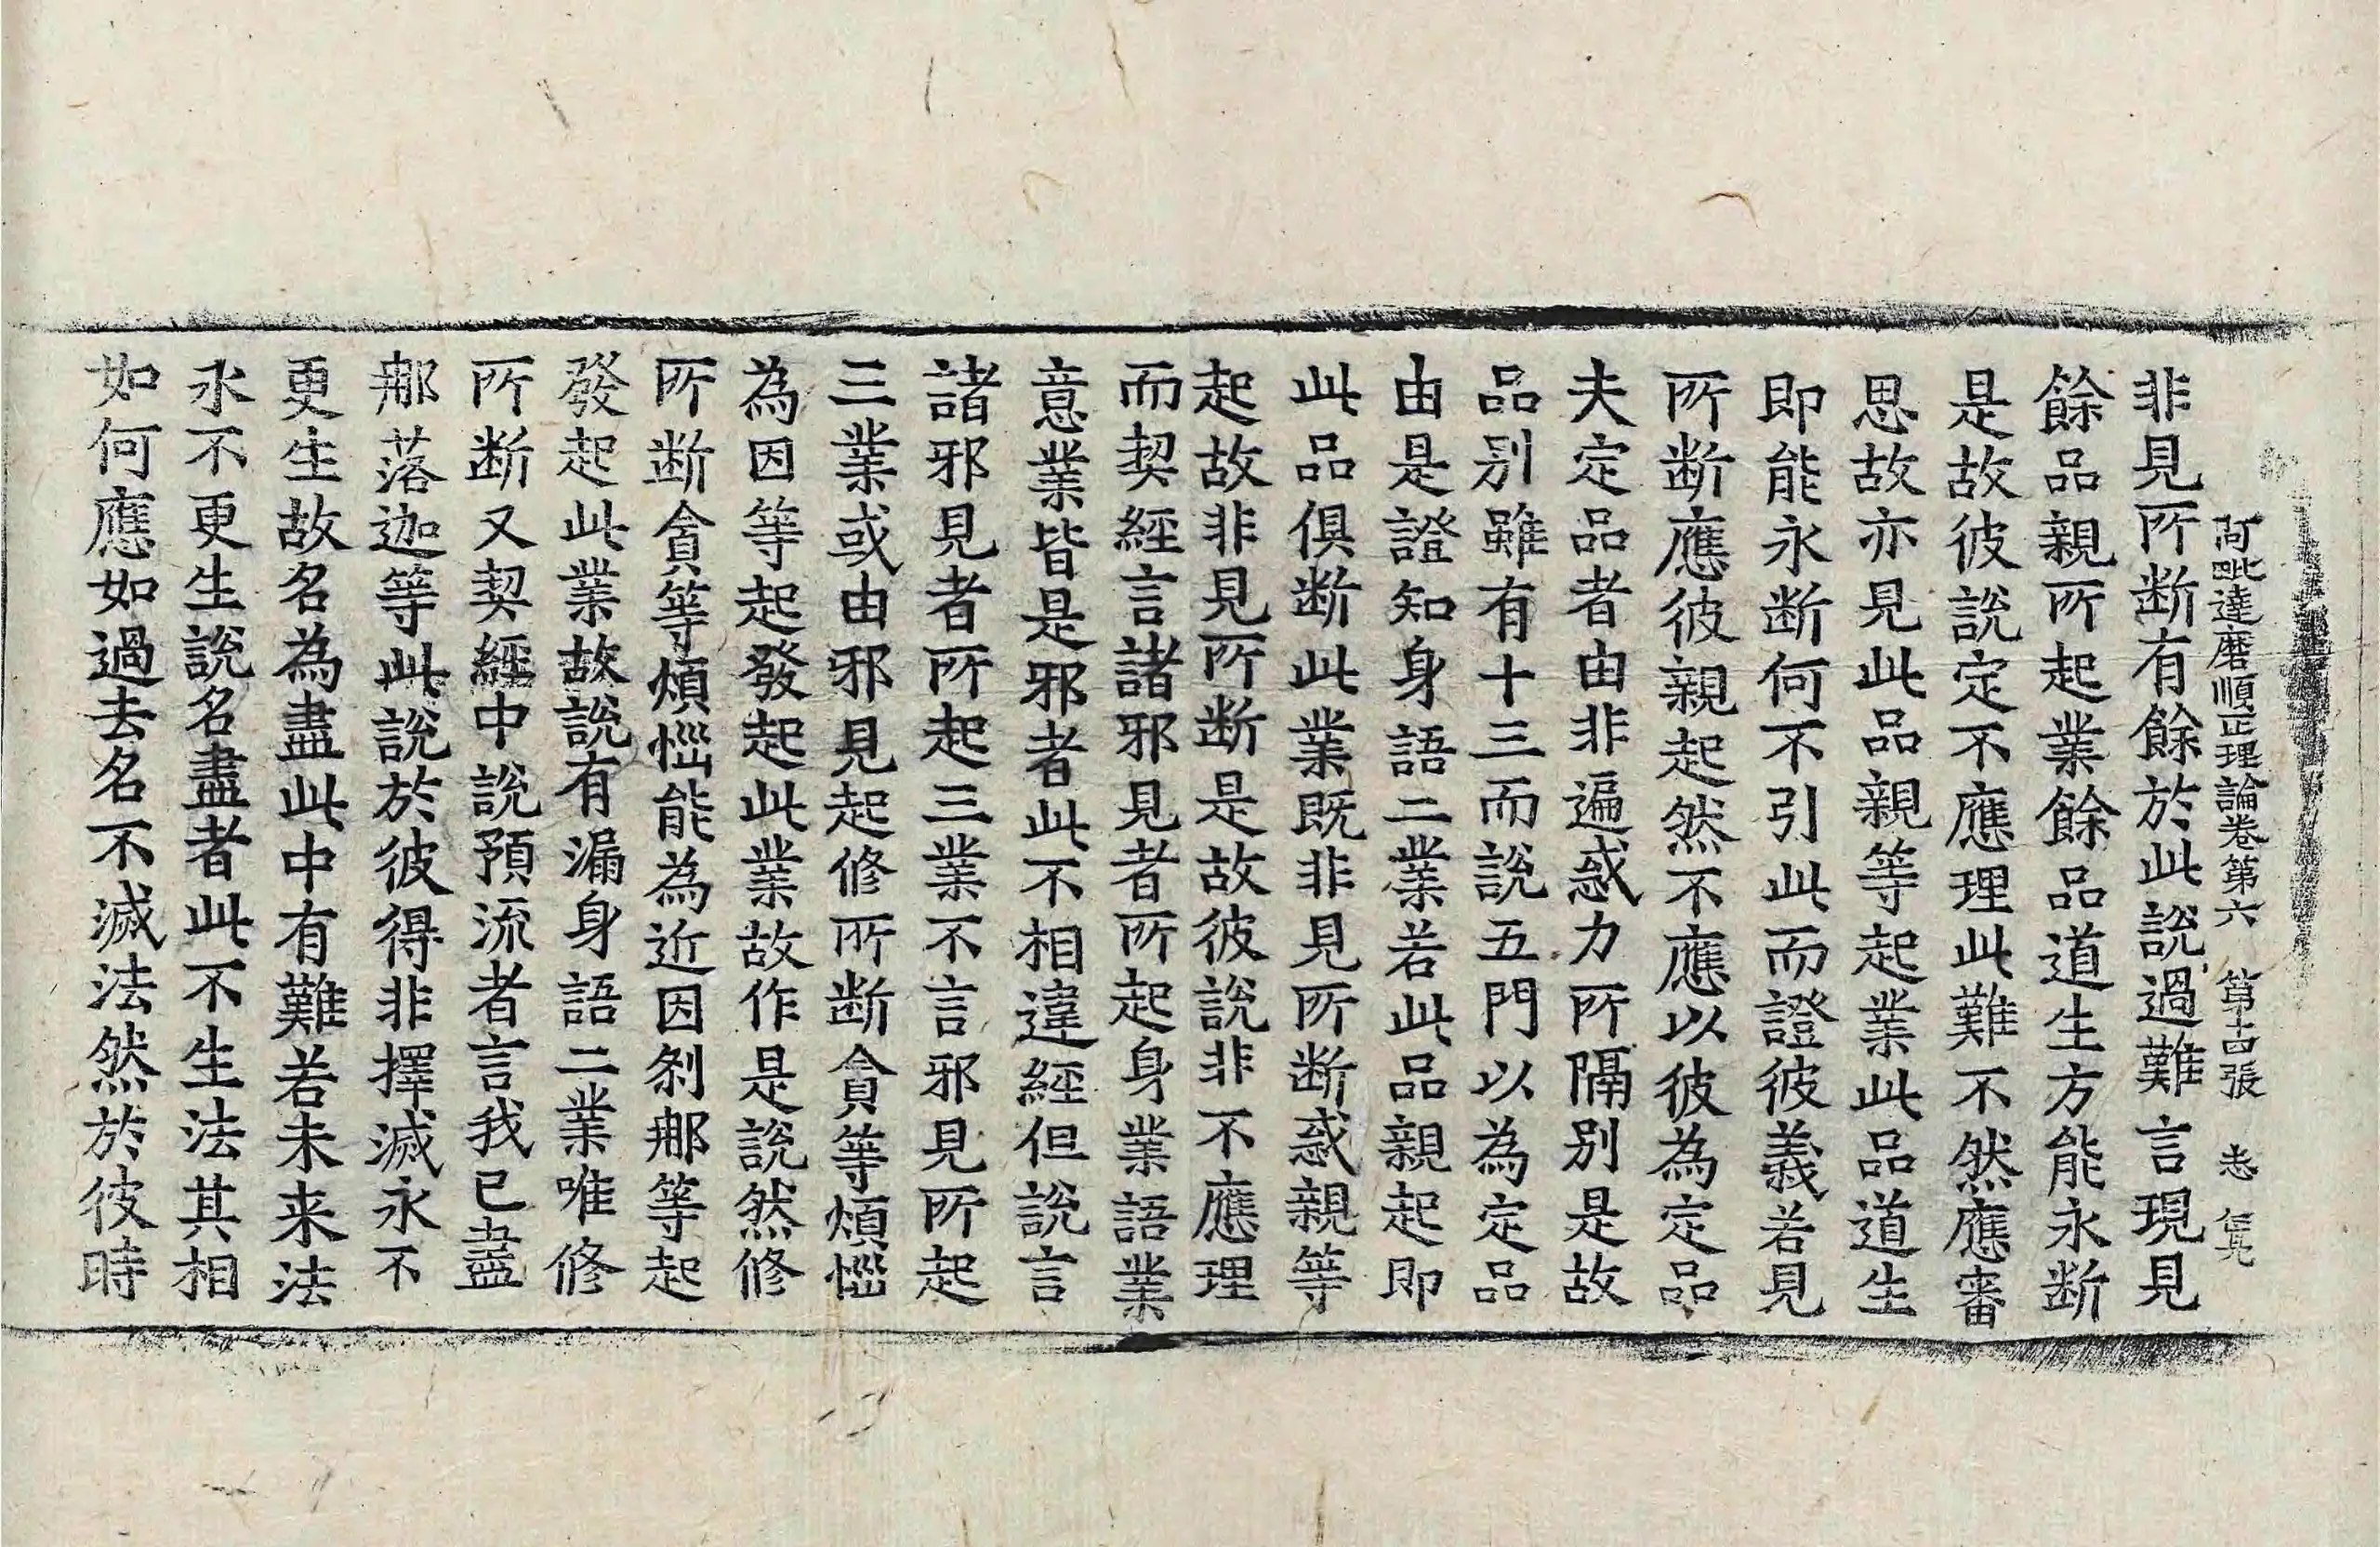 阿毗達磨順正理論卷第六 第十四張 志
非見所断有餘於此說過難言現見
餘品親所起業餘品道生方能永断
是故彼說定不應理此難不然應審
思故亦見此品親等起業此品道生
即能永断何不引此而證彼義若見
所断應彼親起然不應以彼為定品
夫定品者由非遍惑力所隔別是故
品别雖有十三而說五門以為定品
由是證知身語二業若此品親起即
此品俱断此業既非見所断惑親等
起故非見所断是故彼說非不應理
而契經言諸邪見者所起身業語業
意業皆是邪者此不相違經但說言
諸邪見者所起三業不言邪見所起
三業或由邪見起修所断貪等煩惱
為因等起發起此業故作是說然修
所断貪等煩惱能為近因剎那等起
發起此業故說有漏身語二業唯修
所断又契經中說預流者言我已盡
那落迦等此說於彼得非擇滅永不
更生故名為盡此中有難若未来法
永不更生說名盡者此不生法其相
如何應如過去名不滅法然於彼時